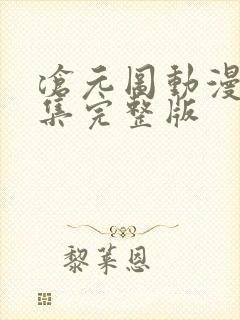 滄元圖動漫
集完整版
黎萊恩